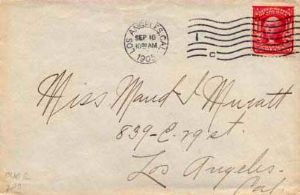 LOS ANGELES, CAL.
SEP 18
1905
Miss Maud J. Muratt
839-E. 29 st.
Los Angeles.
Cal.